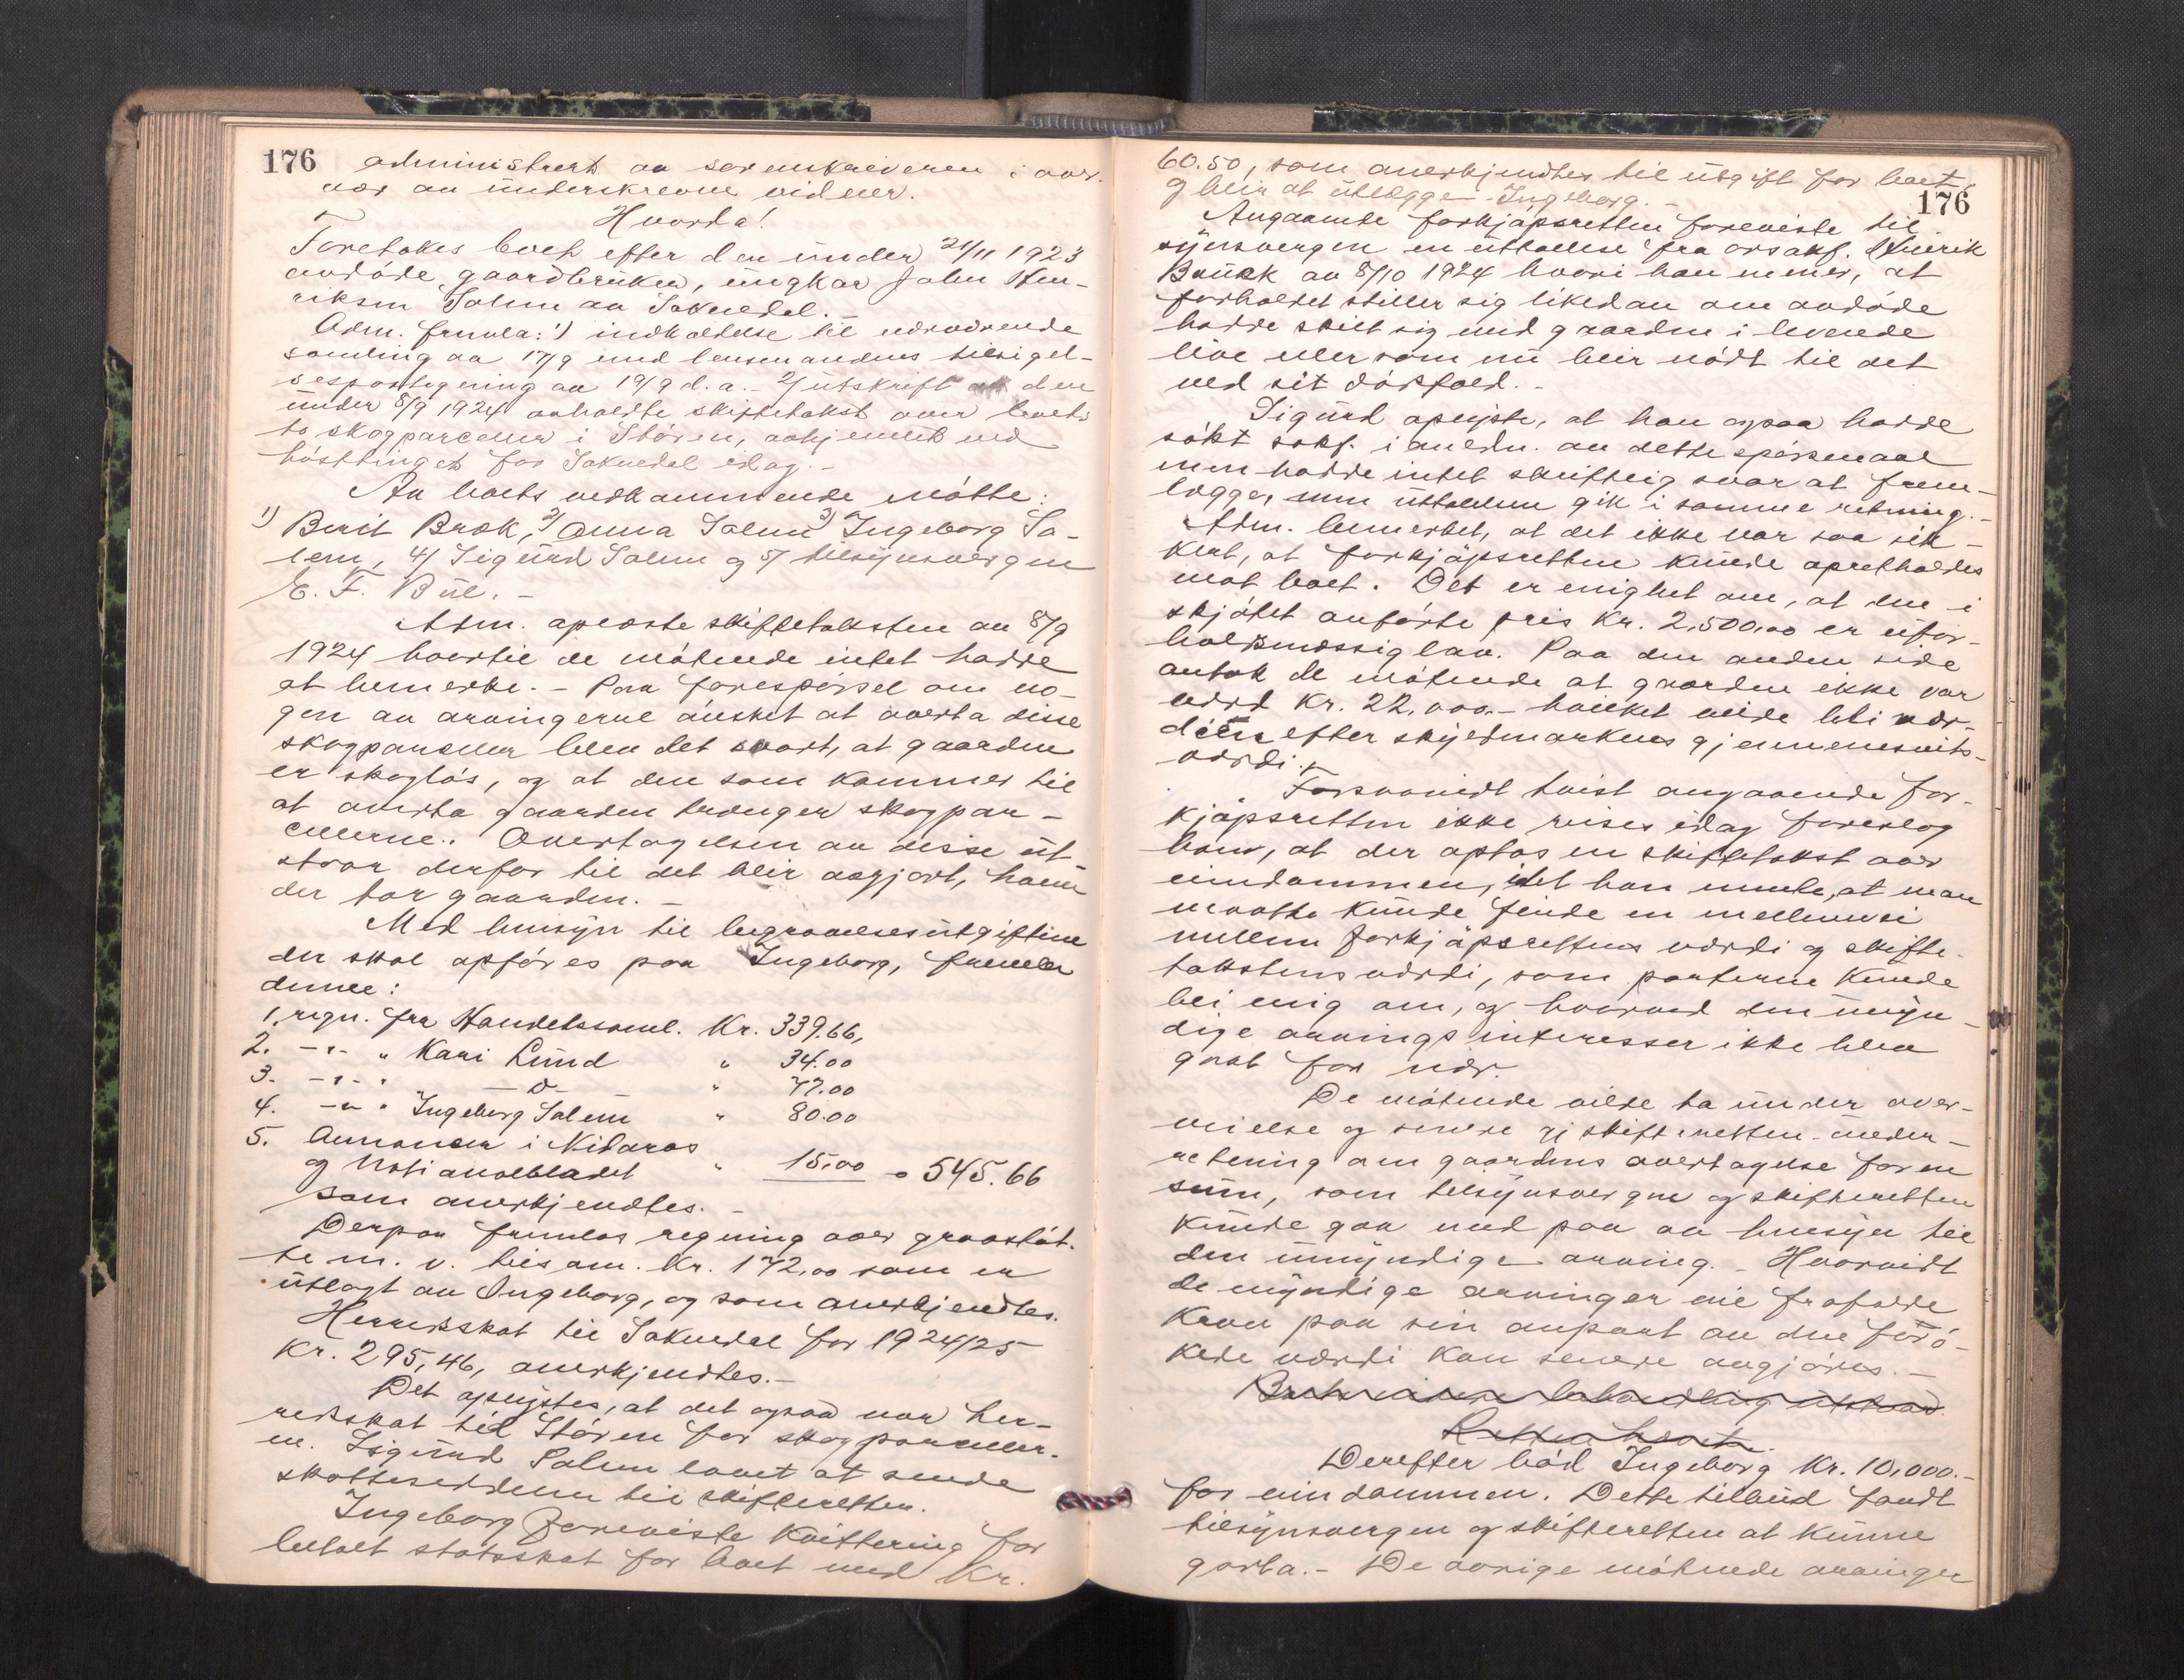 176 administrert av sorenskriveren i over-
vær av underskrevne vidner.
Hvorda!
Foretokes boet efter den under 21/11 1923
avdöde gaardbruker, ungkar John Hen-
riksen Solem av Soknedal.
Adm. fremla: 1) indkaldelse til nærværende
samling av 17/9 med lensmandens tilsigel-
sespaategning av 19/9 d.a. - 2/ utskrift av den
under 8/9 1924 avholdte skiftetakst over boets
to skogparceller i Stören, avhjemlet ved
hösttinget for Soknedal idag. -
Av boets vedkommende mötte:
1) Berit Bræk, 2) Anna Solem 3) Ingeborg So-
lem, 4/ Sigurd Solem og 5/ tilsynsvergen
E. F. Bul. -
Adm. oplæste skiftetaksten av 8/9
1924 hvortil de mötende intet hadde
at bemerke. - Paa forespörsel om no-
gen av arvingerne önsket at overta disse
skogparceller blev det svart, at gaarden
er skoglös, og at den som kommer til
at overta gaarden trænger skogpar-
cellerne. Overtagelsen av disse ut-
staar derfor til det blir avgjort, hvem
der tar gaarden. -
Med hensyn til begravelsesutgiftene
der skal opföres paa Ingeborg, fremla
denne:
1. regn. fra Handelssaml. Kr. 339.66,
2. -"- " Kari Lund " 34.00
3. -"- " -o- " 77.00
4. -"- " Ingeborg Solem " 80.00
5. Annoncer i Nidaros
og Nationalbladet " 15.00 = 545.66
som anerkjendtes. -
Derpaa fremlas regning over gravstöt-
te m. v. tilsam. Kr. 172,00 som er
utlagt av Ingeborg, og som anerkjendtes.
Herredskat til Soknedal for 1924/25
Kr. 295,46, anerkjendtes. -
Det oplystes, at det ogsaa var her-
redskat til Stören for skogparceller-
ne. Sigurd Solem lovet at sende
skatteseddelen til skifteretten.
Ingeborg foreviste kvittering for
betalt statsskat for boet med Kr.
60.50, som anerkjendtes til utgift for boet,
og blir at utlægge Ingeborg. -
176
Angaaende forkjöpsretten foreviste til-
synsvergen en uttalelse fra orsakf.
av 8/10 1924 hvori han mener, at
forholdet stiller sig likedan om avdöde
hadde skilt sig med gaarden i levende
live eller som nu blir nödt til det
ved sit dödsfald. -
Sigurd oplyste, at han ogsaa hadde
sökt sakf. i anledn. av dette spörsmaal
men hadde intet skriftlig svar at frem-
lægge, men uttalelsen gik i samme retning. -
Adm. bemerket, at det ikke var saa sik-
kert, at forkjöpsretten kunde opretholdes
mot boet. Det er enighet om, at den i
skjötet anförte pris Kr. 2,500,00 er ufor-
holdsmæssig lav. Paa den anden side
antok de mötende at gaarden ikke var
værd Kr. 22.000.- hvilket vilde bli vær-
dien efter skyldmarkens gjennemsnits-
værdi. -
Forsaavidt tvist angaaende for-
kjöpsretten ikke reises idag foreslog
han, at der optas en skiftetakst over
eiendommen, idet han mente, at man
maatte kunde finde en mellemvei
mellem forkjöpsrettens værdi og skifte-
takstens værdi, som parterne kunde
bli enig om, og hvorved den umyn-
dige arvings interesser ikke blev
gaat for nær.
De mötende vilde ta under over-
veielse og senere gi skifteretten under-
retning om gaardens overtagelse for en
sum, som tilsynsvergen og skifteretten
kunde gaa med paa av hensyn til
den umyndige arving. - Hvorvidt
de myndige arvinger vil frafalde
krav paa sin anpart av den forö-
kede værdi kan senere avgjöres. -
Boets videre behandling utstaar.
Retten hævet.
Derefter böd Ingeborg Kr. 10,000.-
for eiendommen. Dette tilbud fandt
tilsynsvergen og skifteretten at kunne
godta. - De övrige mötende arvinger